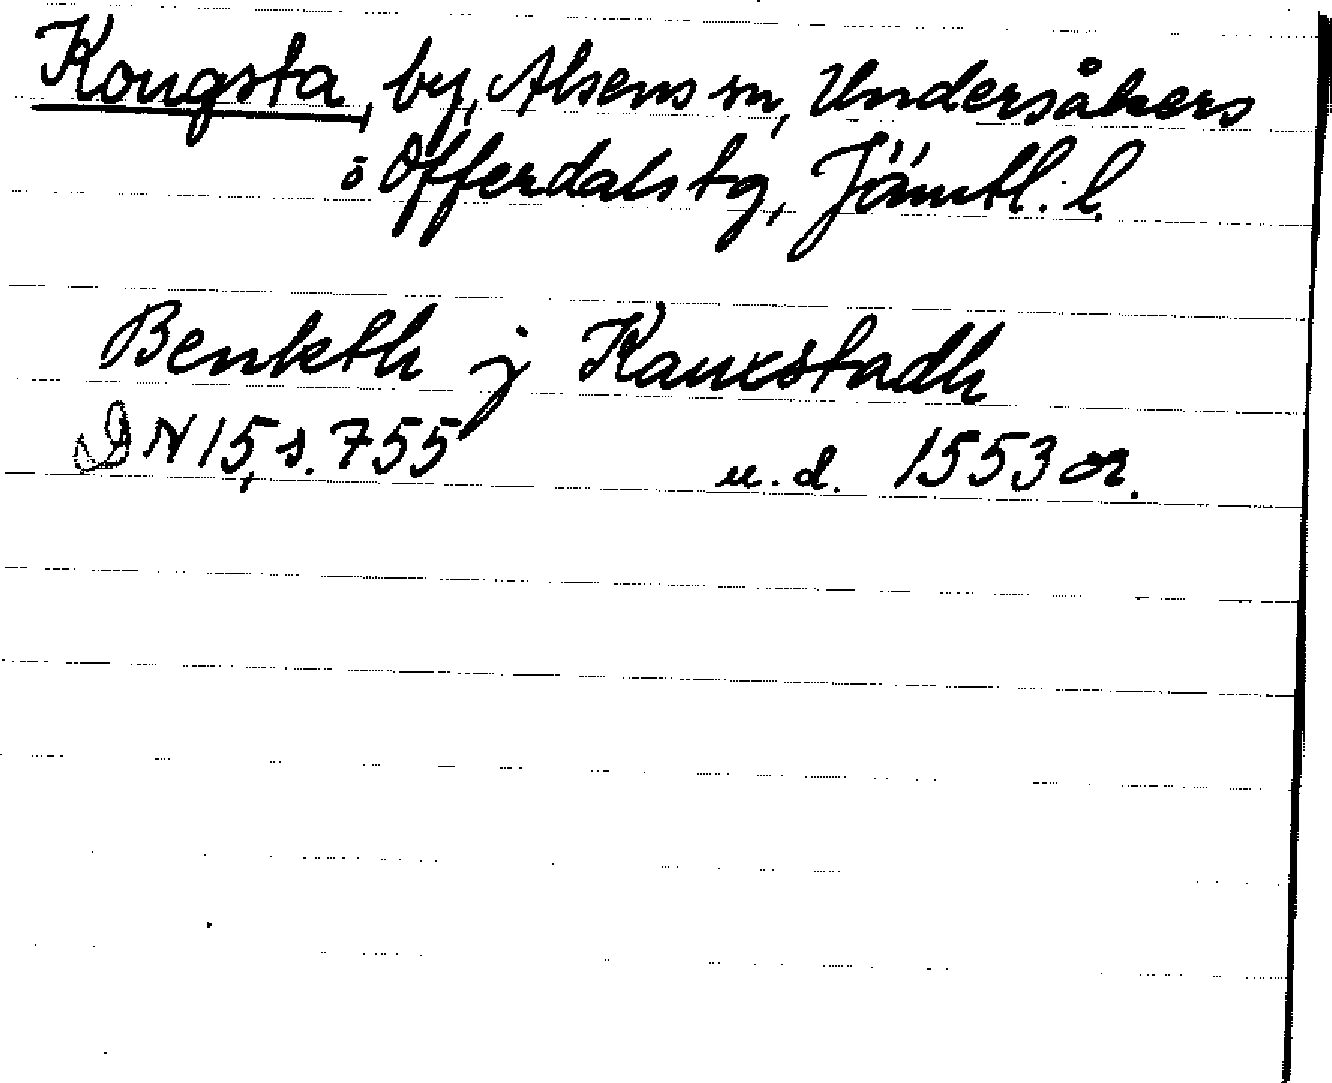 Kougsta, by, Alsens sn, Undersåkers
o Offerdals tg, Jämtl. l.
Benkth j Kauxstadh
DN 15, s. 755 u. d. 1553 or.